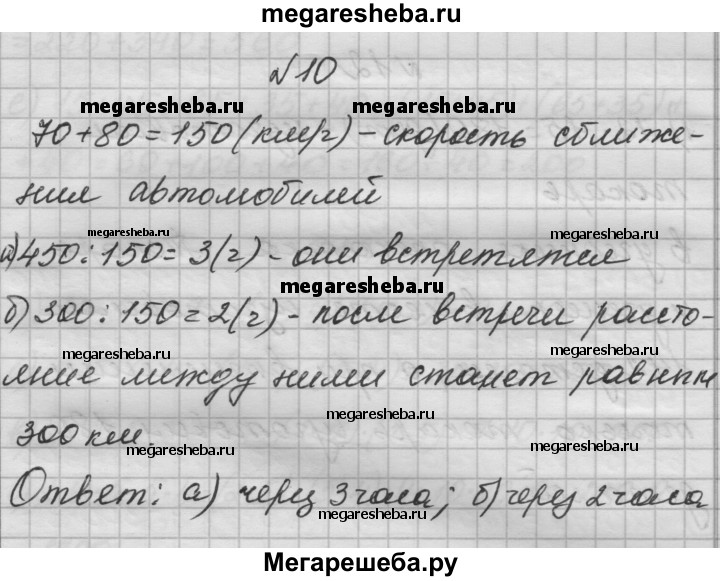 megaresheba.ru
№10
megaresheba.ru megaresheba.ru
70+80=150(км/ч)-скорость сближе-
ния автомобилей
megaresheba.ru megaresheba.ru
а)450:150=3(ч)-они встретятся
megaresheba.ru
б)300:150=2(ч)-после встречи рассто-
megaresheba.ru megaresheba.ru
яние между ними станет равным
megaresheba.ru
300км.
megaresheba.ru
Ответ: а) через 3 часа; б)через 2 часа
megaresheba.ru
Мегарешеба.ру